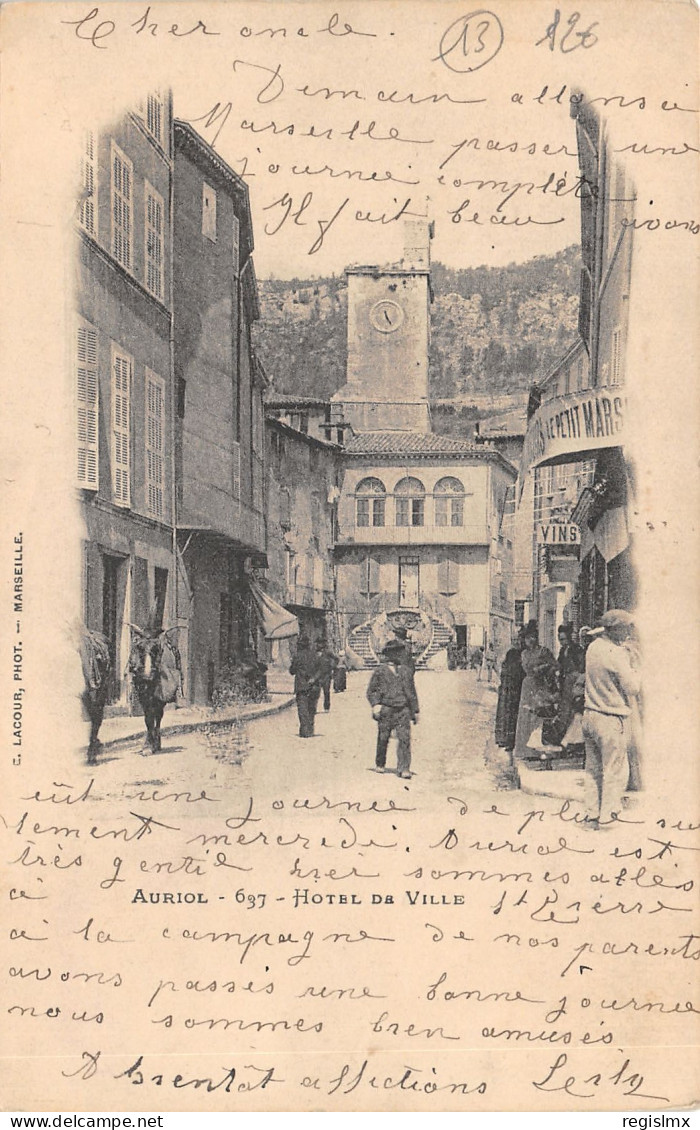 Cher oncle.
13
126
Demain allons a
Marseille passer une
journee complète
Il fait beau avons
LE PETIT MARS
VINS
C. LACOUR, PHOT. — MARSEILLE.
eüt une journee de pluie su
lement mercredi. Auriol est
très gentil hier sommes allés
à St Pierre
AURIOL - 637 - HOTEL DE VILLE
à la campagne de nos parents
avons passés une bonne journee
nous sommes bien amusés
A bientôt affections
delcampe.net
regislmx